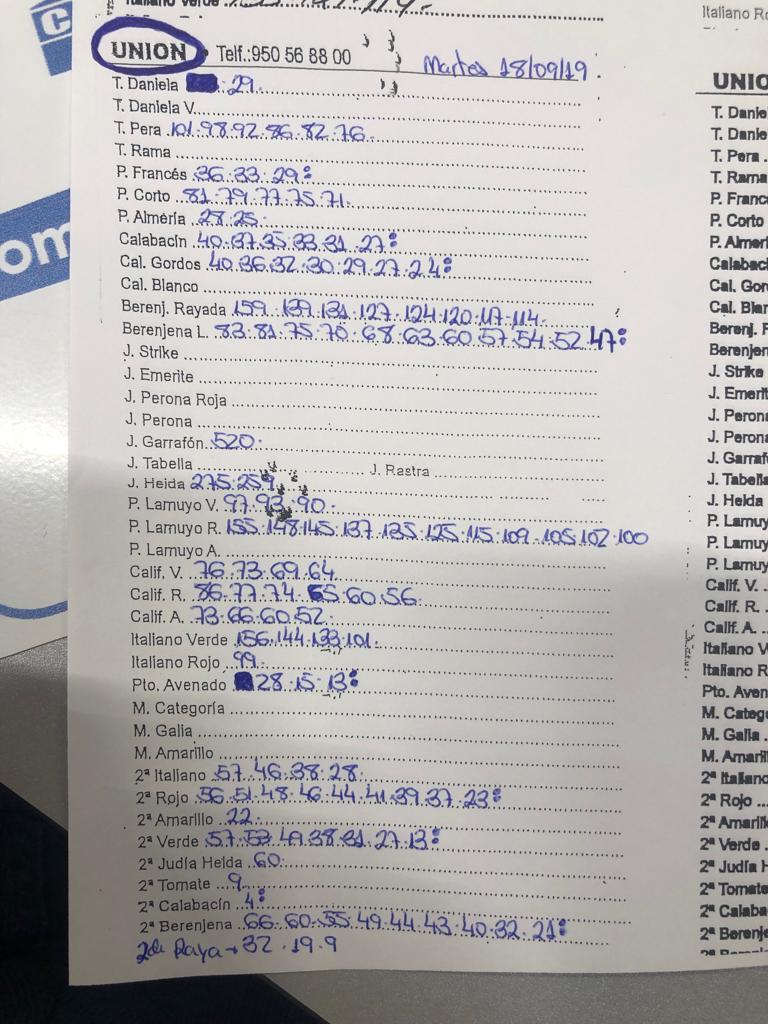 Italiano Verde
UNION Telf.:950 56 88 00 Martes 18/09/19.
T. Daniela 29.
T. Daniela V.
T. Pera 101.98.92.86.82.76.
T. Rama
P. Francés 36.33.29:
P. Corto 81.79.77.75.71.
P. Almería 28.25.
Calabacín 40.37.35.33.31.27:
Cal. Gordos 40.36.32.30.29.27.24:
Cal. Blanco
Berenj. Rayada 159.139.131.127.124.120.117.114.
Berenjena L. 83.81.75.70.68.63.60.57.54.52.47:
J. Strike
J. Emerite
J. Perona Roja
J. Perona
J. Garrafón 520.
J. Tabella J. Rastra
J. Helda 275.259
P. Lamuyo V. 97.93.90.
P. Lamuyo R. 155.148.145.137.135.125.115.109.105.102.100
P. Lamuyo A.
Calif. V. 76.73.69.64.
Calif. R. 86.77.74.65.60.56.
Calif. A. 73.66.60.52.
Italiano Verde 156.144.133.101.
Italiano Rojo 99.
Pto. Avenado 28.15.13:
M. Categoría
M. Galia
M. Amarillo
2ª Italiano 57.46.38.28.
2ª Rojo 56.51.48.46.44.41.39.37.23:
2ª Amarillo 22.
2ª Verde 57.53.49.38.31.27.13:
2ª Judía Helda 60.
2ª Tomate 9.
2ª Calabacín 4:
2ª Berenjena 66.60.55.49.44.43.40.32.21:
2da Raya → 32.19.9
Italiano Ro
UNIO
T. Danie
T. Danie
T. Pera
T. Rama
P. Franc
P. Corto
P. Almer
Calabac
Cal. Gor
Cal. Blar
Berenj. F
Berenjen
J. Strike
J. Emerit
J. Perona
J. Perona
J. Garrafo
J. Tabella
J. Helda
P. Lamuy
P. Lamuy
P. Lamuy
Calif. V.
Calif. R.
Calif. A.
Italiano V
Italiano R
Pto. Aven
M. Catego
M. Galia
M. Amaril
2ª Italiano
2ª Rojo
2ª Amarill
2ª Verde
2ª Judía H
2ª Tomate
2ª Calaba
2ª Berenje
om